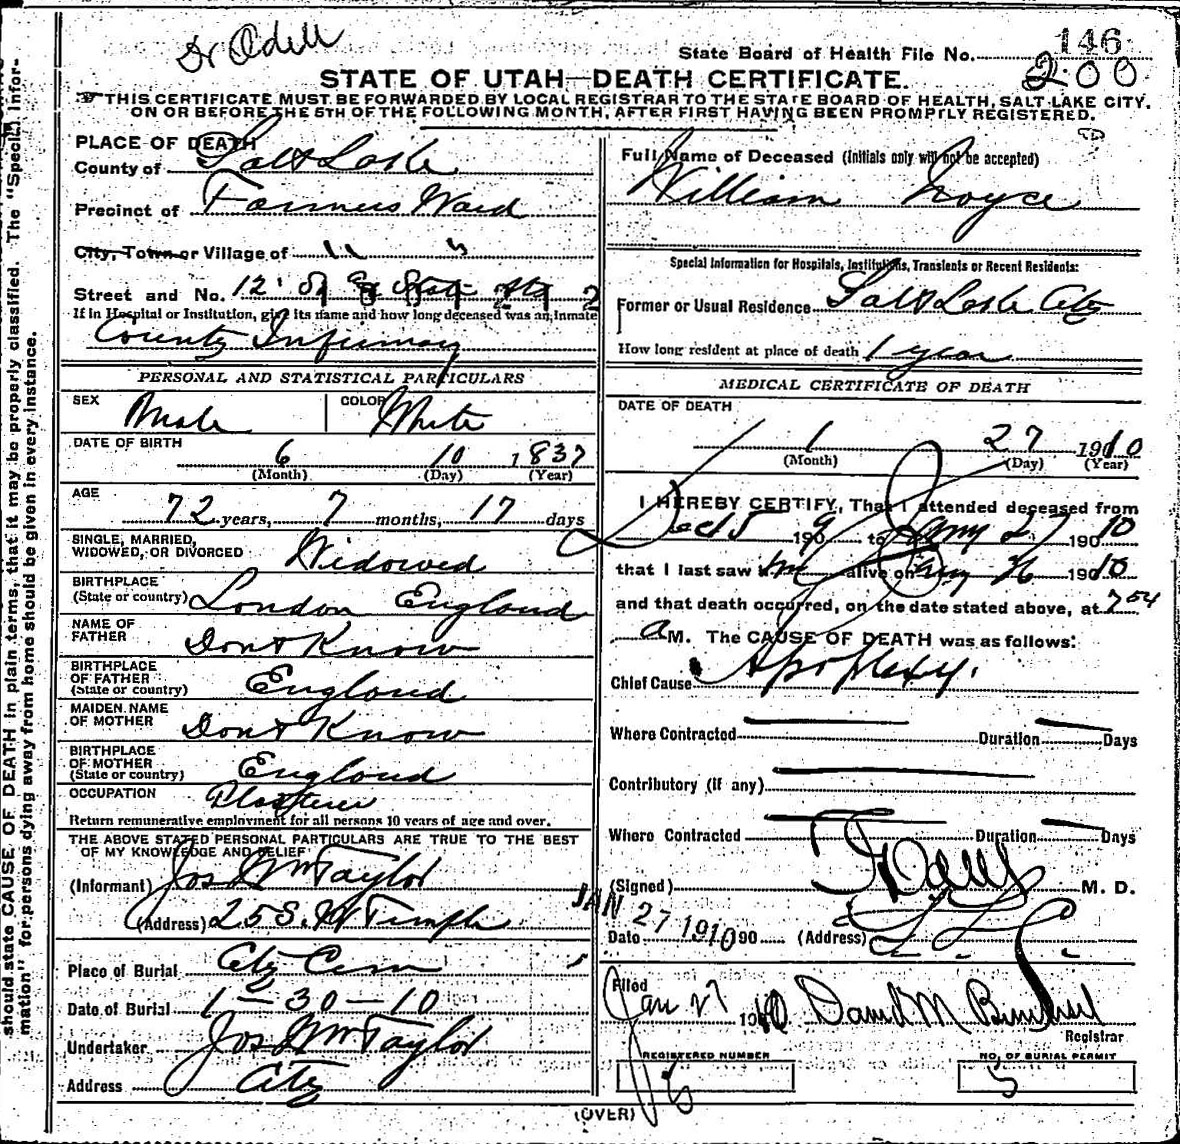 Dr Odell
State Board of Health File No. 146
200
STATE OF UTAH—DEATH CERTIFICATE.
THIS CERTIFICATE MUST BE FORWARDED BY LOCAL REGISTRAR TO THE STATE BOARD OF HEALTH, SALT LAKE CITY.
ON OR BEFORE THE 5TH OF THE FOLLOWING MONTH, AFTER FIRST HAVING BEEN PROMPTLY REGISTERED.
should state CAUSE OF DEATH in plain terms, that it may be properly classified. The "Special Infor-
mation" for persons dying away from home should be given in every instance.
PLACE OF DEATH
County of Salt Lake
Precinct of Farmers Ward
City, Town or Village of " "
Street and No. 12
If in Hospital or Institution, give its name and how long deceased was an Inmate
County Infirmary
PERSONAL AND STATISTICAL PARTICULARS
SEX Male COLOR White
DATE OF BIRTH
6 10 1837
(Month) (Day) (Year)
AGE
72 years, 7 months, 17 days
SINGLE, MARRIED,
WIDOWED, OR DIVORCED Widowed
BIRTHPLACE
(State or country) London England
NAME OF
FATHER Dont Know
BIRTHPLACE
OF FATHER
(State or country) England
MAIDEN NAME
OF MOTHER Dont Know
BIRTHPLACE
OF MOTHER
(State or country) England
OCCUPATION Plasterer
Return remunerative employment for all persons 10 years of age and over.
THE ABOVE STATED PERSONAL PARTICULARS ARE TRUE TO THE BEST
OF MY KNOWLEDGE AND BELIEF
(Informant) Jos Wm Taylor
(Address) 25 S. W Temple
Place of Burial City Cem
Date of Burial 1-30-10
Undertaker Jos Wm Taylor
Address City
Full Name of Deceased (Initials only will not be accepted)
William Noyce
Special Information for Hospitals, Institutions, Transients or Recent Residents:
Former or Usual Residence Salt Lake City
How long resident at place of death 1 year
MEDICAL CERTIFICATE OF DEATH
DATE OF DEATH
1 27 1910
(Month) (Day) (Year)
I HEREBY CERTIFY, That I attended deceased from
190 9 to Jany 27 190 10
that I last saw him alive on Jany 26 190 10
and that death occurred, on the date stated above, at 7 54
a M. The CAUSE OF DEATH was as follows:
Chief Cause Apoplexy.
Where Contracted Duration Days
Contributory (if any)
Where Contracted Duration Days
(Signed) M. D.
Date JAN 27 1910 90 (Address)
Filed
Jan 27 1910 David M
Registrar
REGISTERED NUMBER
6
NO. OF BURIAL PERMIT
5
(OVER)